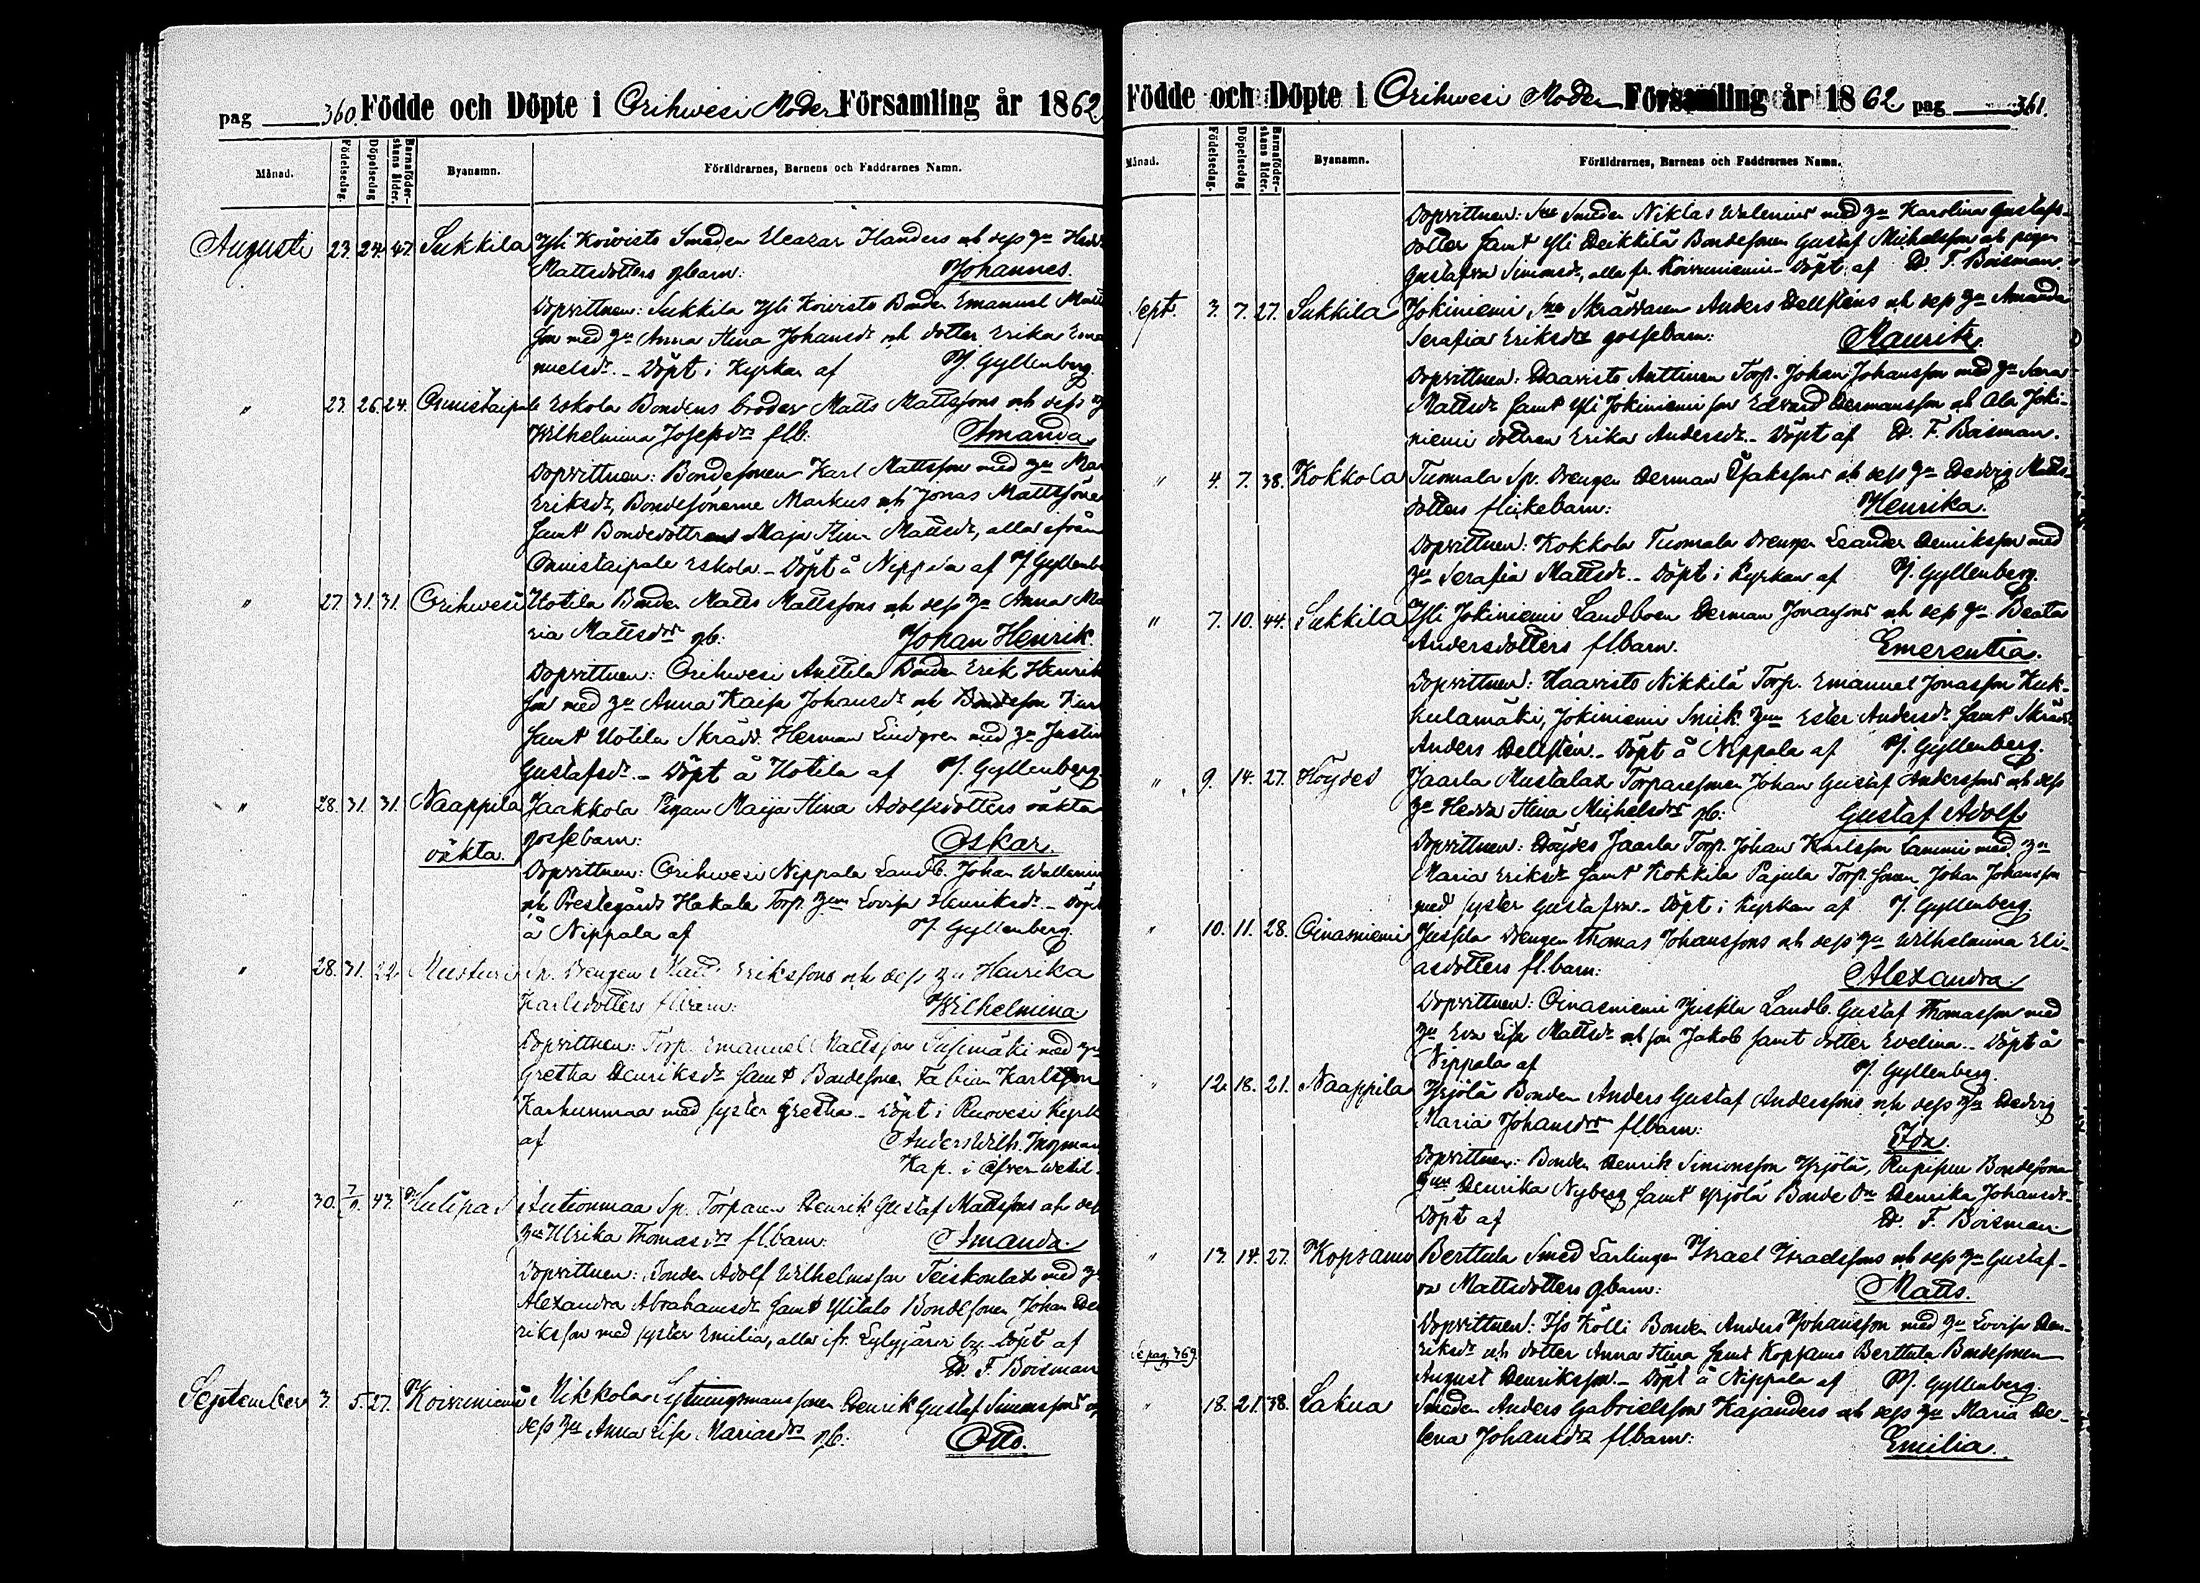 pag 360. Födde och Döpte i Orihwesi Moder Församling år 1862
Månad. Födelsedag. Döpelsedag Barnaföderskans ålder. Byanamn. Föräldrarnes, Barnens och Faddrarnes Namn.
Augusti 23. 24. 47. Sukkila Yli Koivisto Smeden Eleazar Flanders och dess hu
Mattsdotters gbarn: Johannes.
Dopvittnen: Sukkila Yli Koivisto Bonden Emanuel
son med hu Anna Stina Johansdr och dotter Erika Ema
nuelsdr. – Döpt i Kyrkan af J. Gyllenberg.
" 23. 26. 24. Onnistaipale Eskola Bondens broder Matts Mattssons och dess
Wilhelmina Josefsdrs flb: Amanda
Dopvittnen: Bondesonen Karl Mattsson med hu
Eriksdr, Bondesönerne Markus och Jonas Mattssöner
samt Bondedottren Maja Stina Mattsdr, alla ifrån
Onnistaipale Eskola – Döpt å Nippala af J Gyllenb
" 27. 31. 31. Orihwesi Uotila Bonden Matts Mattssons och dess hu Anna Ma
ria Mattsdrs gb: Johan Henrik
Dopvittnen: Orihwesi Anttila Bonden Erik Henrik
son med hu Anna Kaisa Johansdr och Bondeson
samt Uotila Skrädd. Herman Lindgren med hu Justin
Gustafsdr. – Döpt å Uotila af J. Gyllenberg.
" 28. 31. 31. Naappila Jaakkola Pigan Maija Stina Adolfsdotters oäkta
oäkta. gossebarn: Oskar.
Dopvittnen: Orihwesi Nippala Landb. Johan Wallenius
och Prestegårds Hakala Torp. hun Lovisa Henriksdr. – Döpt
å Nippala af J. Gyllenberg.
" 28. 31. 22. Musturi Sp. Drengen Matts Erikssons och dess hu Henrika
Karlsdotters flbarn: Wilhelmina
Dopvittnen: Torp. Emanuel Mattsson Susimäki med hu
Gretha Henriksdr samt Bondesonen Fabian Karlsson
Karhunmaa med syster Gretha – Döpt i Ruovesi Kyrk
af Anders Wilh. Ingman
Kap. i
" 30. 7/9. 43. Sp. Torparen Henrik Gustaf Mattssons och dess
hu Ulrika Thomasdrs flbarn: Amanda.
Dopvittnen: Bonden Adolf Wilhelmsson Teiskonlax med
Alexandra Abrahamsdr samt Ylitalo Bondesonen Johan He
riksson med syster Emilia, alla ifr. Lylyjärvi by. Döpt af
H. F. Boisman
September 3. 5. 27. Koivuniemi Nikkola Sytningsmanssonen Henrik Gustaf Simonssons
dess hu Anna Lisa Mariasdrs gb: Otto.
Födde och Döpte i Orihwesi Moder Församling år 1862 pag 361.
Månad. Födelsedag. Döpelsedag Barnaföderskans ålder. Byanamn. Föräldrarnes, Barnens och Faddrarnes Namn.
Dopvittnen: Smeden Niklas Walenius med hu Karolina Gustafs-
dotter samt Yli Heikkilä Bondesonen Gustaf Michelsson och pigan
Gustafva Simonsdr, alla fr. Koivuniemi – Döpt af H. F. Boisman.
Sept. 3. 7. 27. Sukkila Jokiniemi Skräddaren Anders Hellsténs och dess hu Amanda
Serafia Eriksdrs gossebarn: Maurits
Dopvittnen: Haavisto Anttinen Torp. Johan Johansson med hu Sara
Mattsdr samt Yli Jokiniemi son Edvard Hermansson och Ala Joki-
niemi dottren Erika Andersdr. – Döpt af H. F. Boisman.
" 4. 7. 38. Kokkola Tuomala Sp. Drengen Herman Isakssons och dess hu Hedvig Matts-
dotters flickebarn: Henrika.
Dopvittnen: Kokkola Tuomala Drengen Leander Henriksson med
hu Serafia Mattsdr. – Döpt i Kyrkan af J. Gyllenberg.
" 7. 10. 44. Sukkila Yli Jokiniemi Landboen Herman Jonassons och dess hu Beata
Andersdotters flbarn. Emerentia.
Dopvittnen: Haavisto Nikkilä Torp. Emanuel Jonasson Kuk-
kulamäki, Jokiniemi Snick. hun Ester Andersdr samt Skrädd
Anders Hellstén. – Döpt å Nippala af J. Gyllenberg.
" 9. 14. 27. Höydes Jaarla Mustalax Torparesonen Johan Gustaf Anderssons och dess
hu Hedda Stina Michelsdrs gb: Gustaf Adolf
Dopvittnen: Höydes Jaarla Torp. Johan Karlsson Lammi med hu
Maria Eriksdr samt Kokkila Pajula Torp. sonen Johan Johansson
med syster Gustafva. – Döpt i Kyrkan af J. Gyllenberg
" 10. 11. 28. Oinasniemi Juskla Drengen Thomas Johanssons och dess hu Wilhelmina Eli-
asdotters fl.barn: Alexandra
Dopvittnen: Oinasniemi Juskla Landb. Gustaf Thomasson med
hu Eva Lisa Mattsdr och son Jakob samt dotter Evelina. – Döpt å
Nippala af J. Gyllenberg.
" 12. 18. 21. Naappila Yrjölä Bonden Anders Gustaf Anderssons och dess hu Hedvig
Maria Johansdrs flbarn: Ida.
Dopvittnen: Bonden Henrik Simonsson Yrjölä, Bondesonen
hun Henrika Nyberg samt Yrjölä Bonde Henrika Johansdr
Döpt af H. F. Boisman
" 13. 14. 27. Kopsamo Berttula Smed Lärlingen Israel Israelssons och dess hu Gustaf-
va Mattsdotters gbarn: Matts.
Dopvittnen: Iso Kölli Bonden Anders Johansson med hu Lovisa Hen-
se pag. 369. riksdr och dotter Anna Stina samt Kopsamo Berttula Bondesonen
August Henriksson. – Döpt å Nippala af J. Gyllenberg.
" 18. 21. 38. Lakua Smeden Anders Gabrielsson Kajanders och dess hu Maria He-
lena Johansdrs flbarn: Emilia.